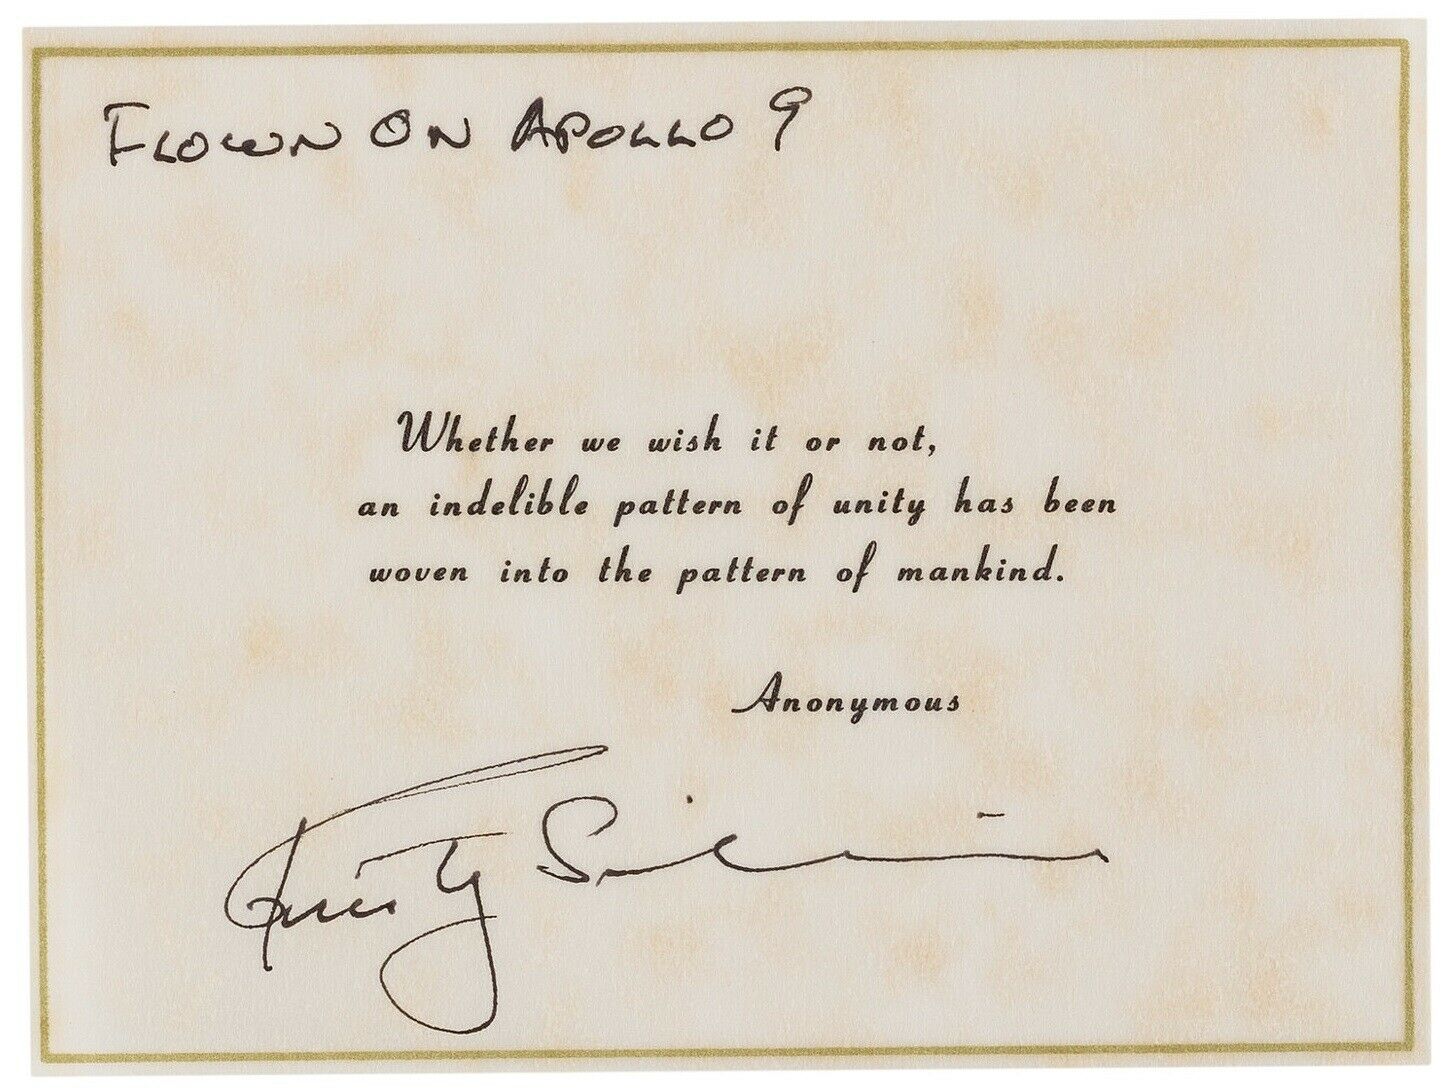 FLOWN ON APOLLO 9
Whether we wish it or not,
an indelible pattern of unity has been
woven into the pattern of mankind.
Anonymous
Rusty